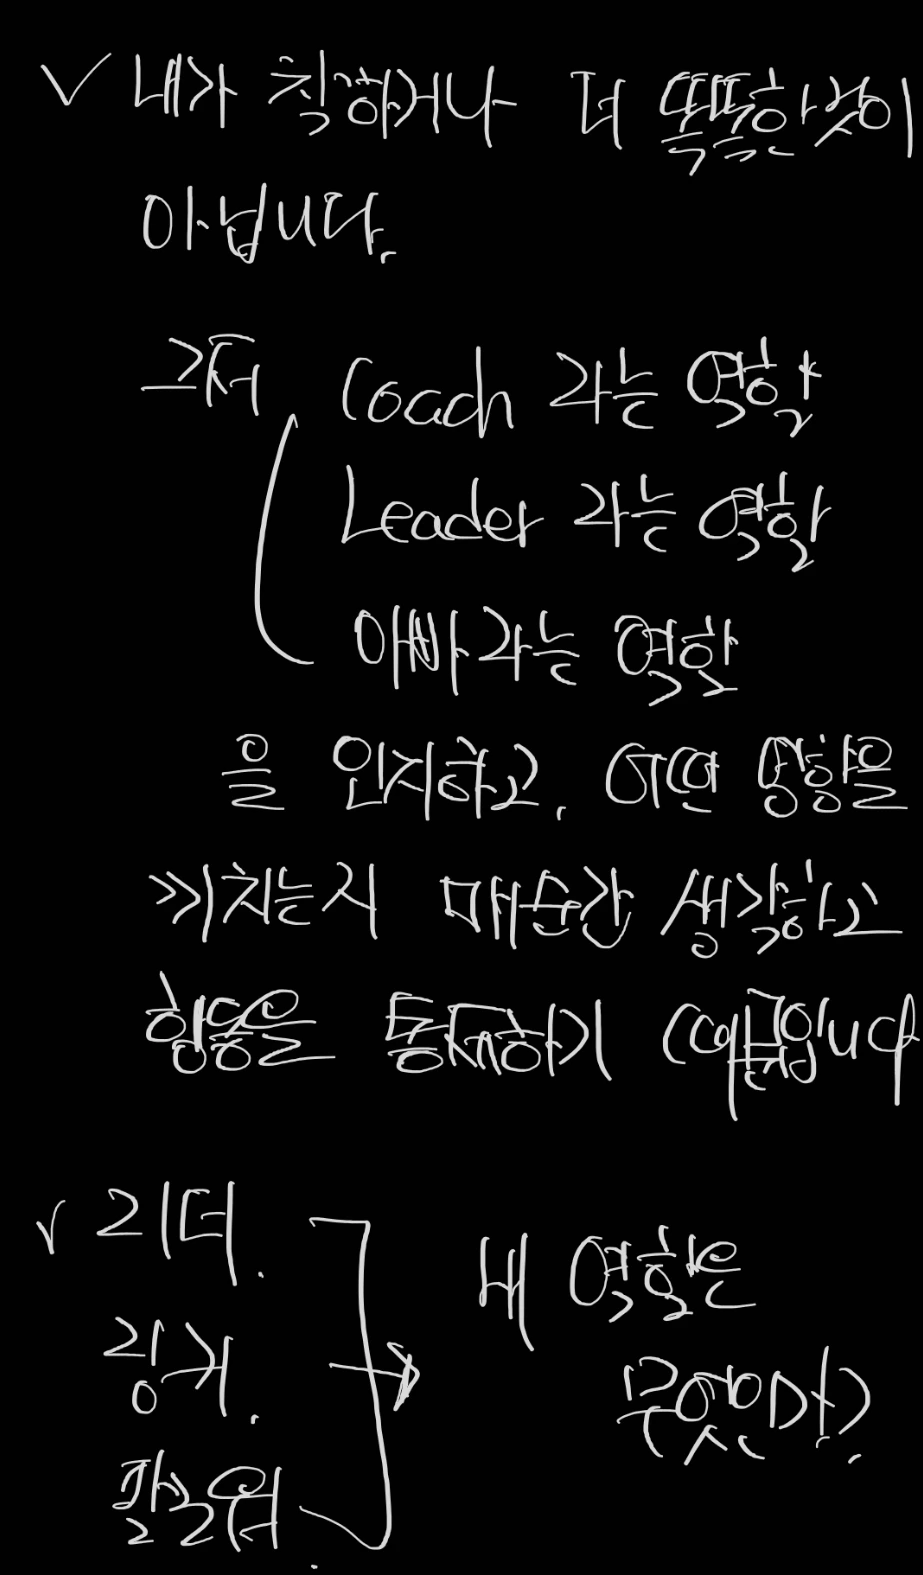 ✓ 내가 착하거나 더 똑똑한 것이
아닙니다.
그저 Coach 라는 역할
Leader 라는 역할
아빠라는 역할
을 인지하고, 어떤 영향을
끼치는지 매순간 생각하고
행동을 통제하기 때문입니다
✓ 리더.
내 역할은
무엇인가?
팔로워.